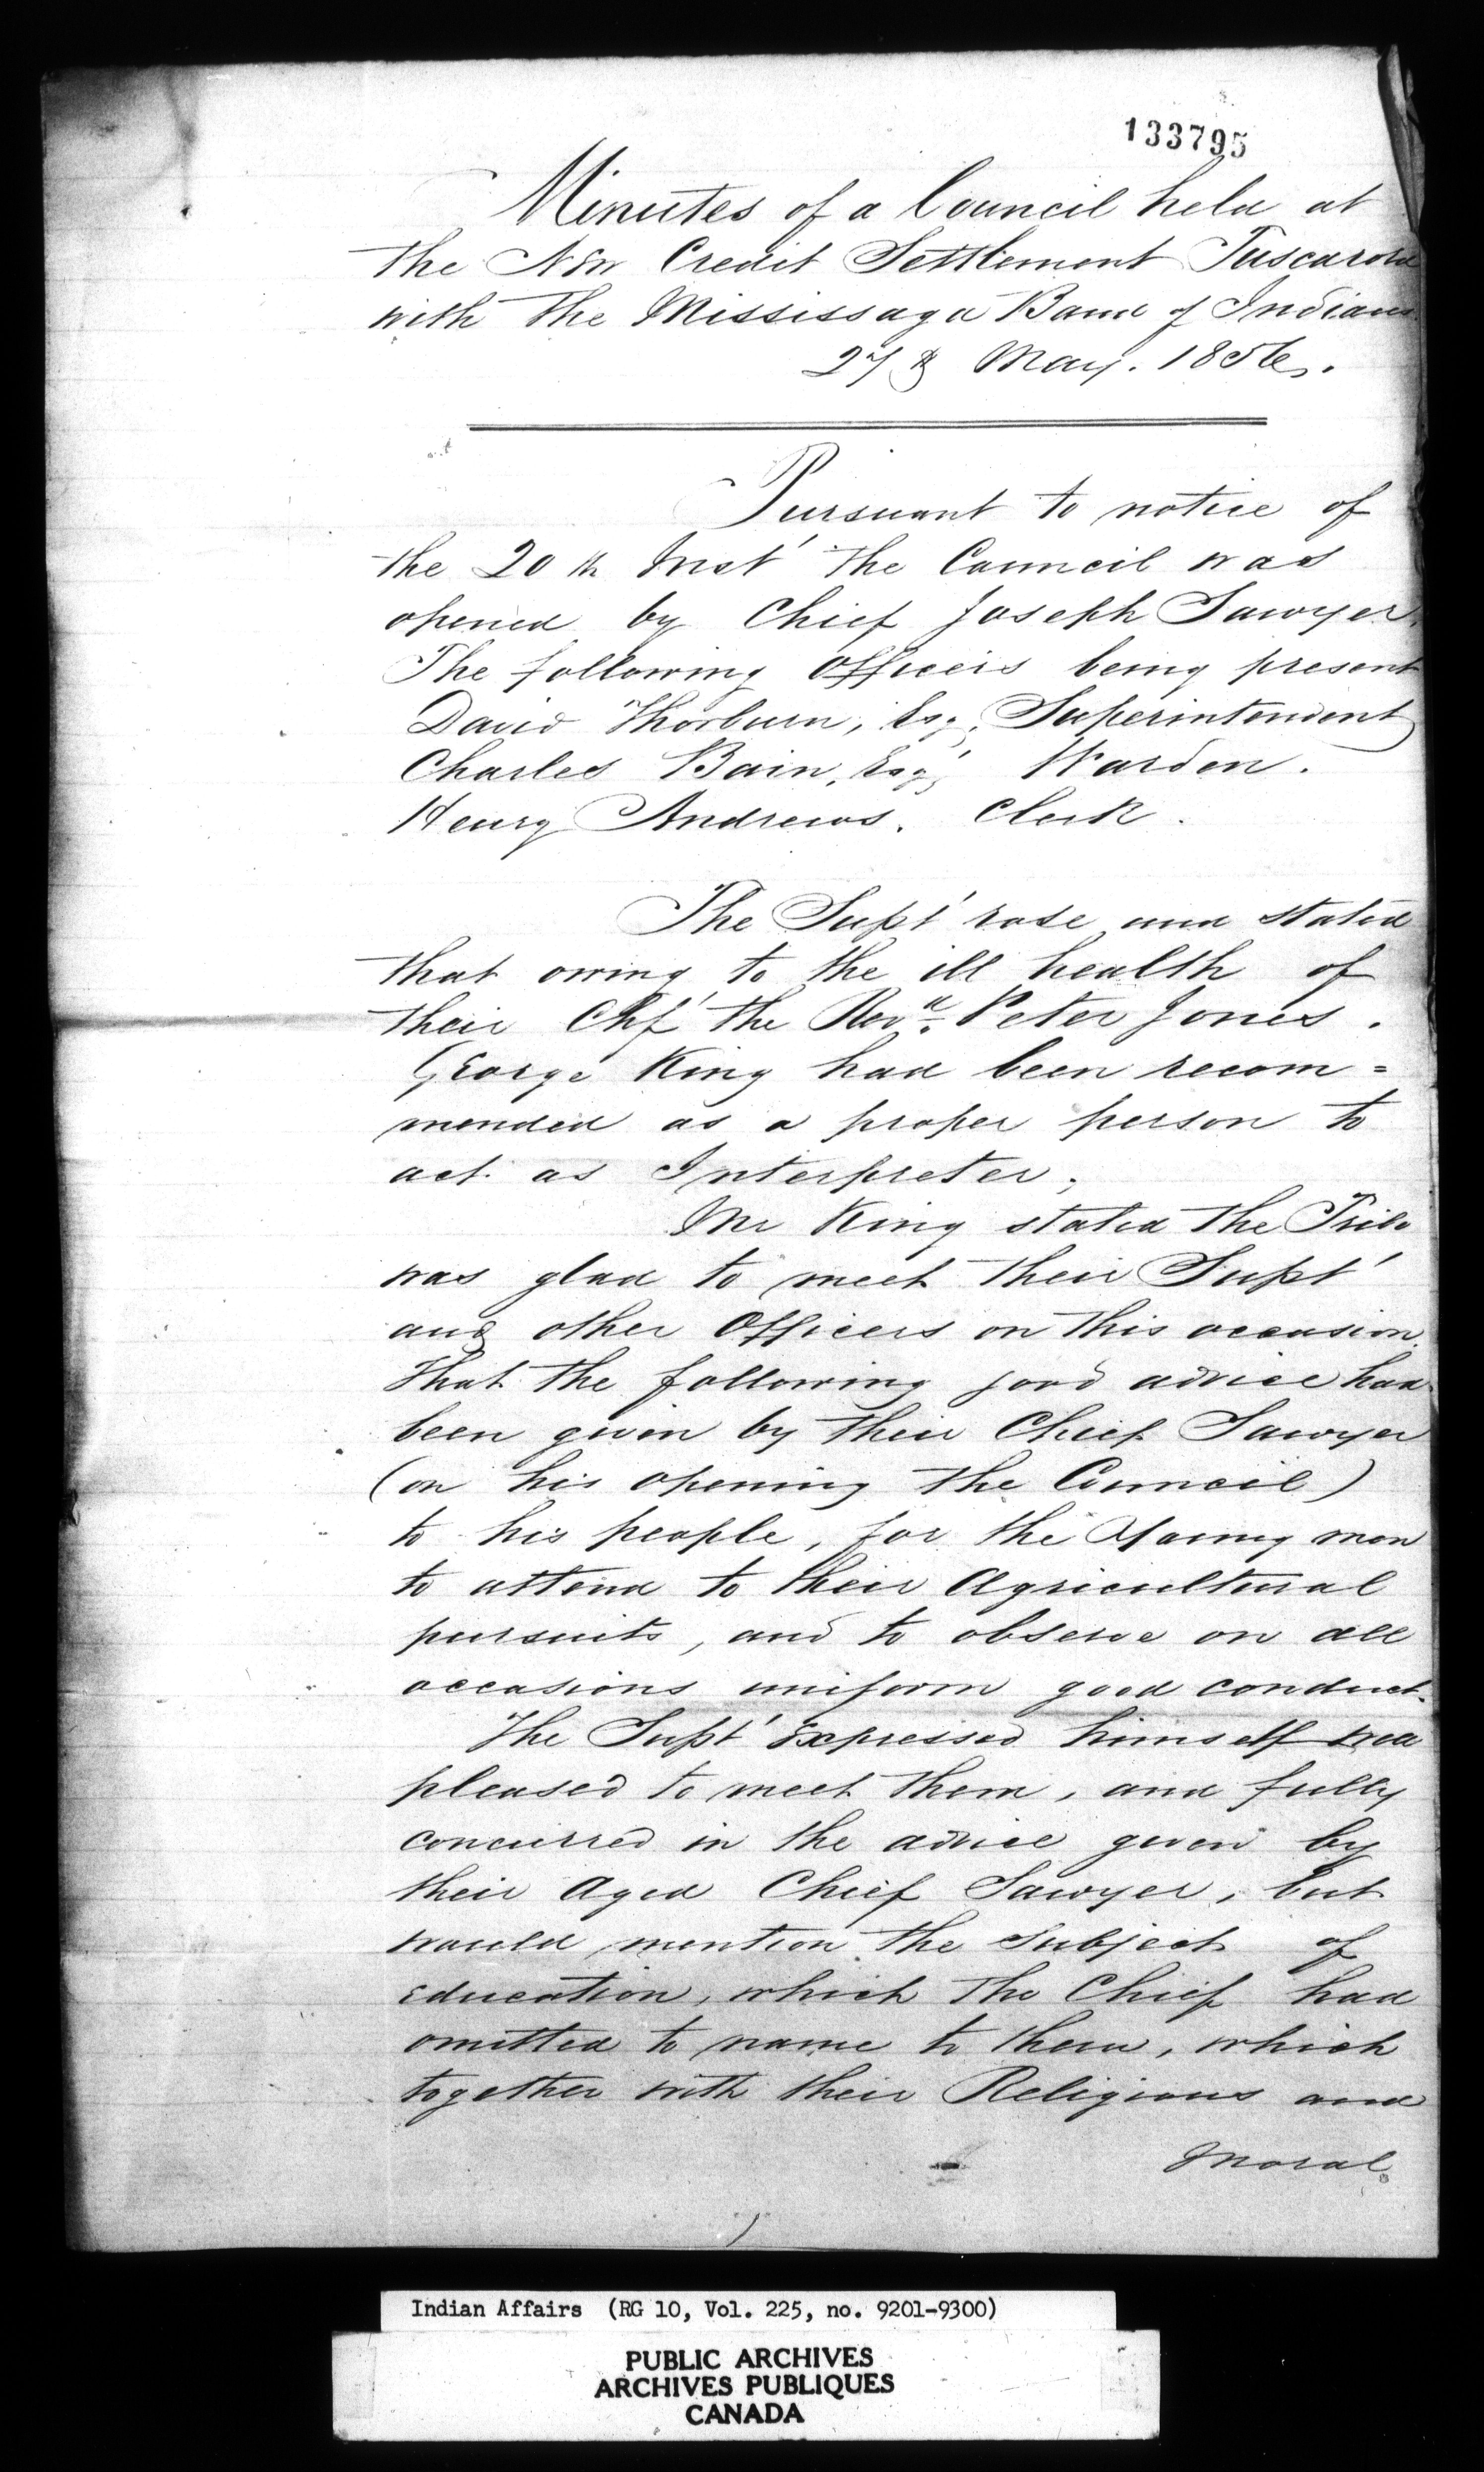 133795
Minutes of a Council held at
the New Credit Settlement Tuscarora
with the Mississaga Band of Indians.
27th May. 1856.
Pursuant to notice of
the 20th Inst' the Council was
opened by Chief Joseph Sawyer.
The following Officers being present
David Thorburn, Esq, Superintendent
Charles Bain, Esq, Warden.
Henry Andrews. Clerk.
The Supt' rose and stated
that owing to the ill health of
their Chf' the Revd. Peter Jones.
George King had been recom=
mended as a proper person to
act as Interpreter.
Mr King stated the Tribe
was glad to meet their Supt'
and other Officers on this occasion.
That the following good advice had
been given by their Chief Sawyer
(on his opening the Council)
to his people, for the Young men
to attend to their Agricultural
pursuits, and to observe on all
occasions uniform good conduct.
The Supt' Expressed himself well
pleased to meet them, and fully
concurred in the advice given by
their Aged Chief Sawyer, but
would mention the Subject of
Education, which the Chief had
omitted to name to them, which
together with their Religious and
Moral
1
Indian Affairs (RG 10, Vol. 225, no. 9201-9300)
PUBLIC ARCHIVES
ARCHIVES PUBLIQUES
CANADA